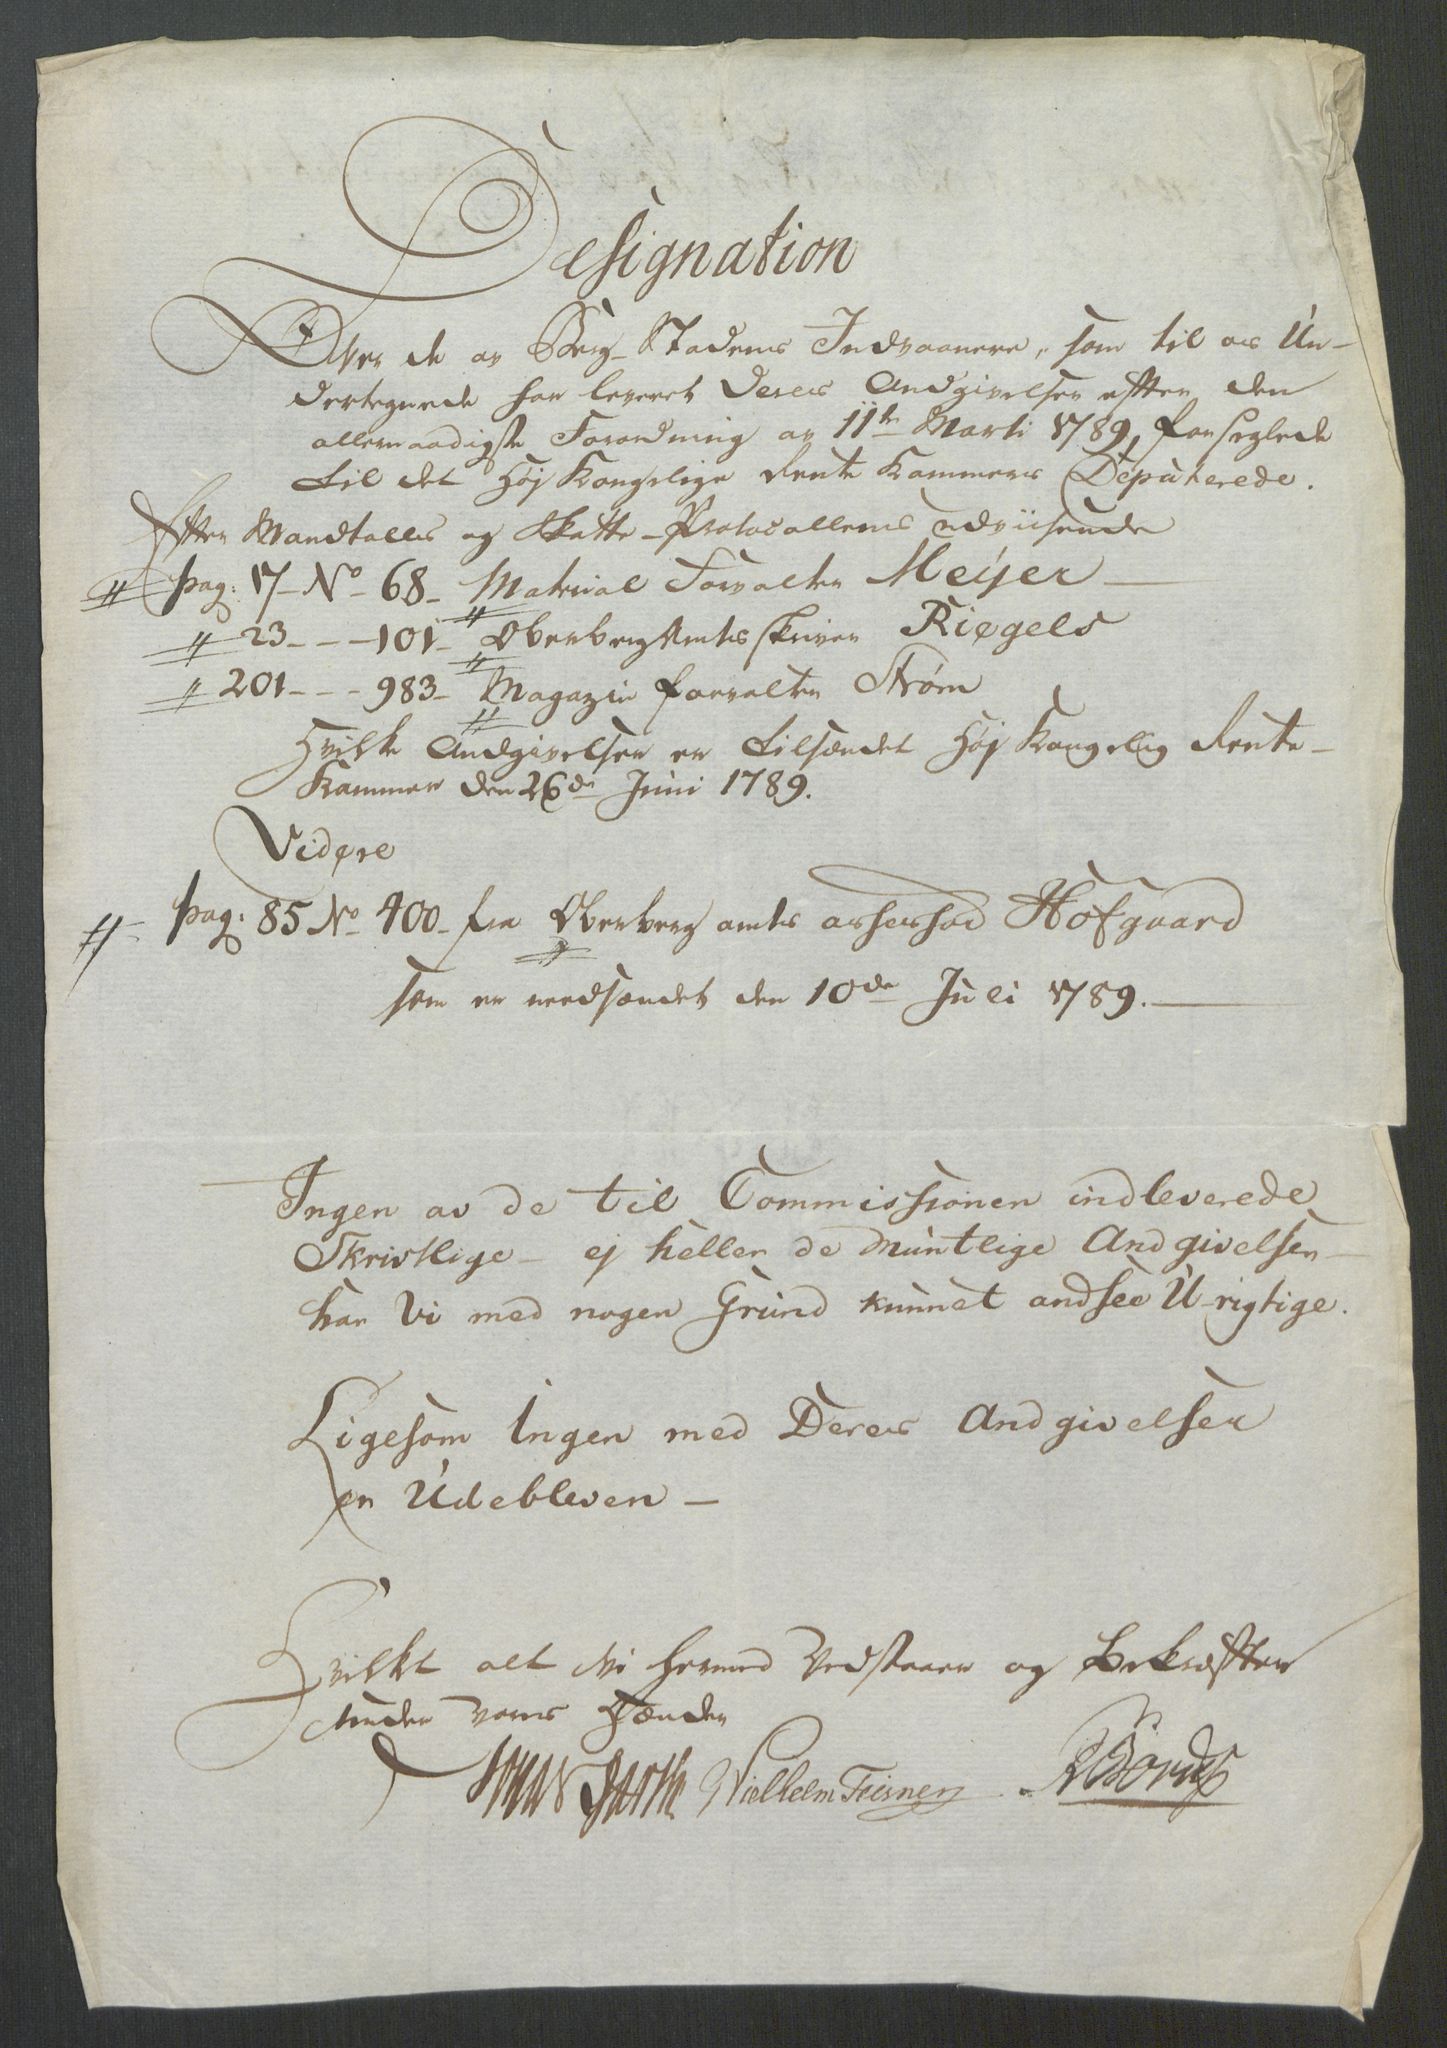 Designation
Over de av Berg-Stadens Indvaanere, som til os Un-
dertegnede har leveret Deres Andgivelser efter den
allernaadigste Forordning av 11te Marti 1789, forseglede
til det Høj Kongelige Rente Kammers Deputerede.
Efter Mandtallets og Skatte-Protocollens udviisende
pag: 17- No- 68- Material Forvalter Meyer
23- - - 101- Oberbergamtsskriver Riegels
201- - - 983- Magazin forvalter Strøm
Hvilke Andgivelser er tilsendet Høj Kongelig Rente-
Kammer den 26de Juni 1789.
Videre
pag: 85 No 400- fra Oberberg amts assessor Hofgaard
som er nedsendet den 10de Juli 1789.
Ingen av de til Commissionen indleverede
Skrivtlige- ej heller de Muntlige Andgivelser-
har Vi med nogen Grund kunnet andsee U-rigtige.
Ligesom Ingen med Deres Andgivelser
er Udebleven-
Hvilket alt Vi hermed Vedstaaer og Bekræfter
under vores Hænder
Wielhelm Feisner